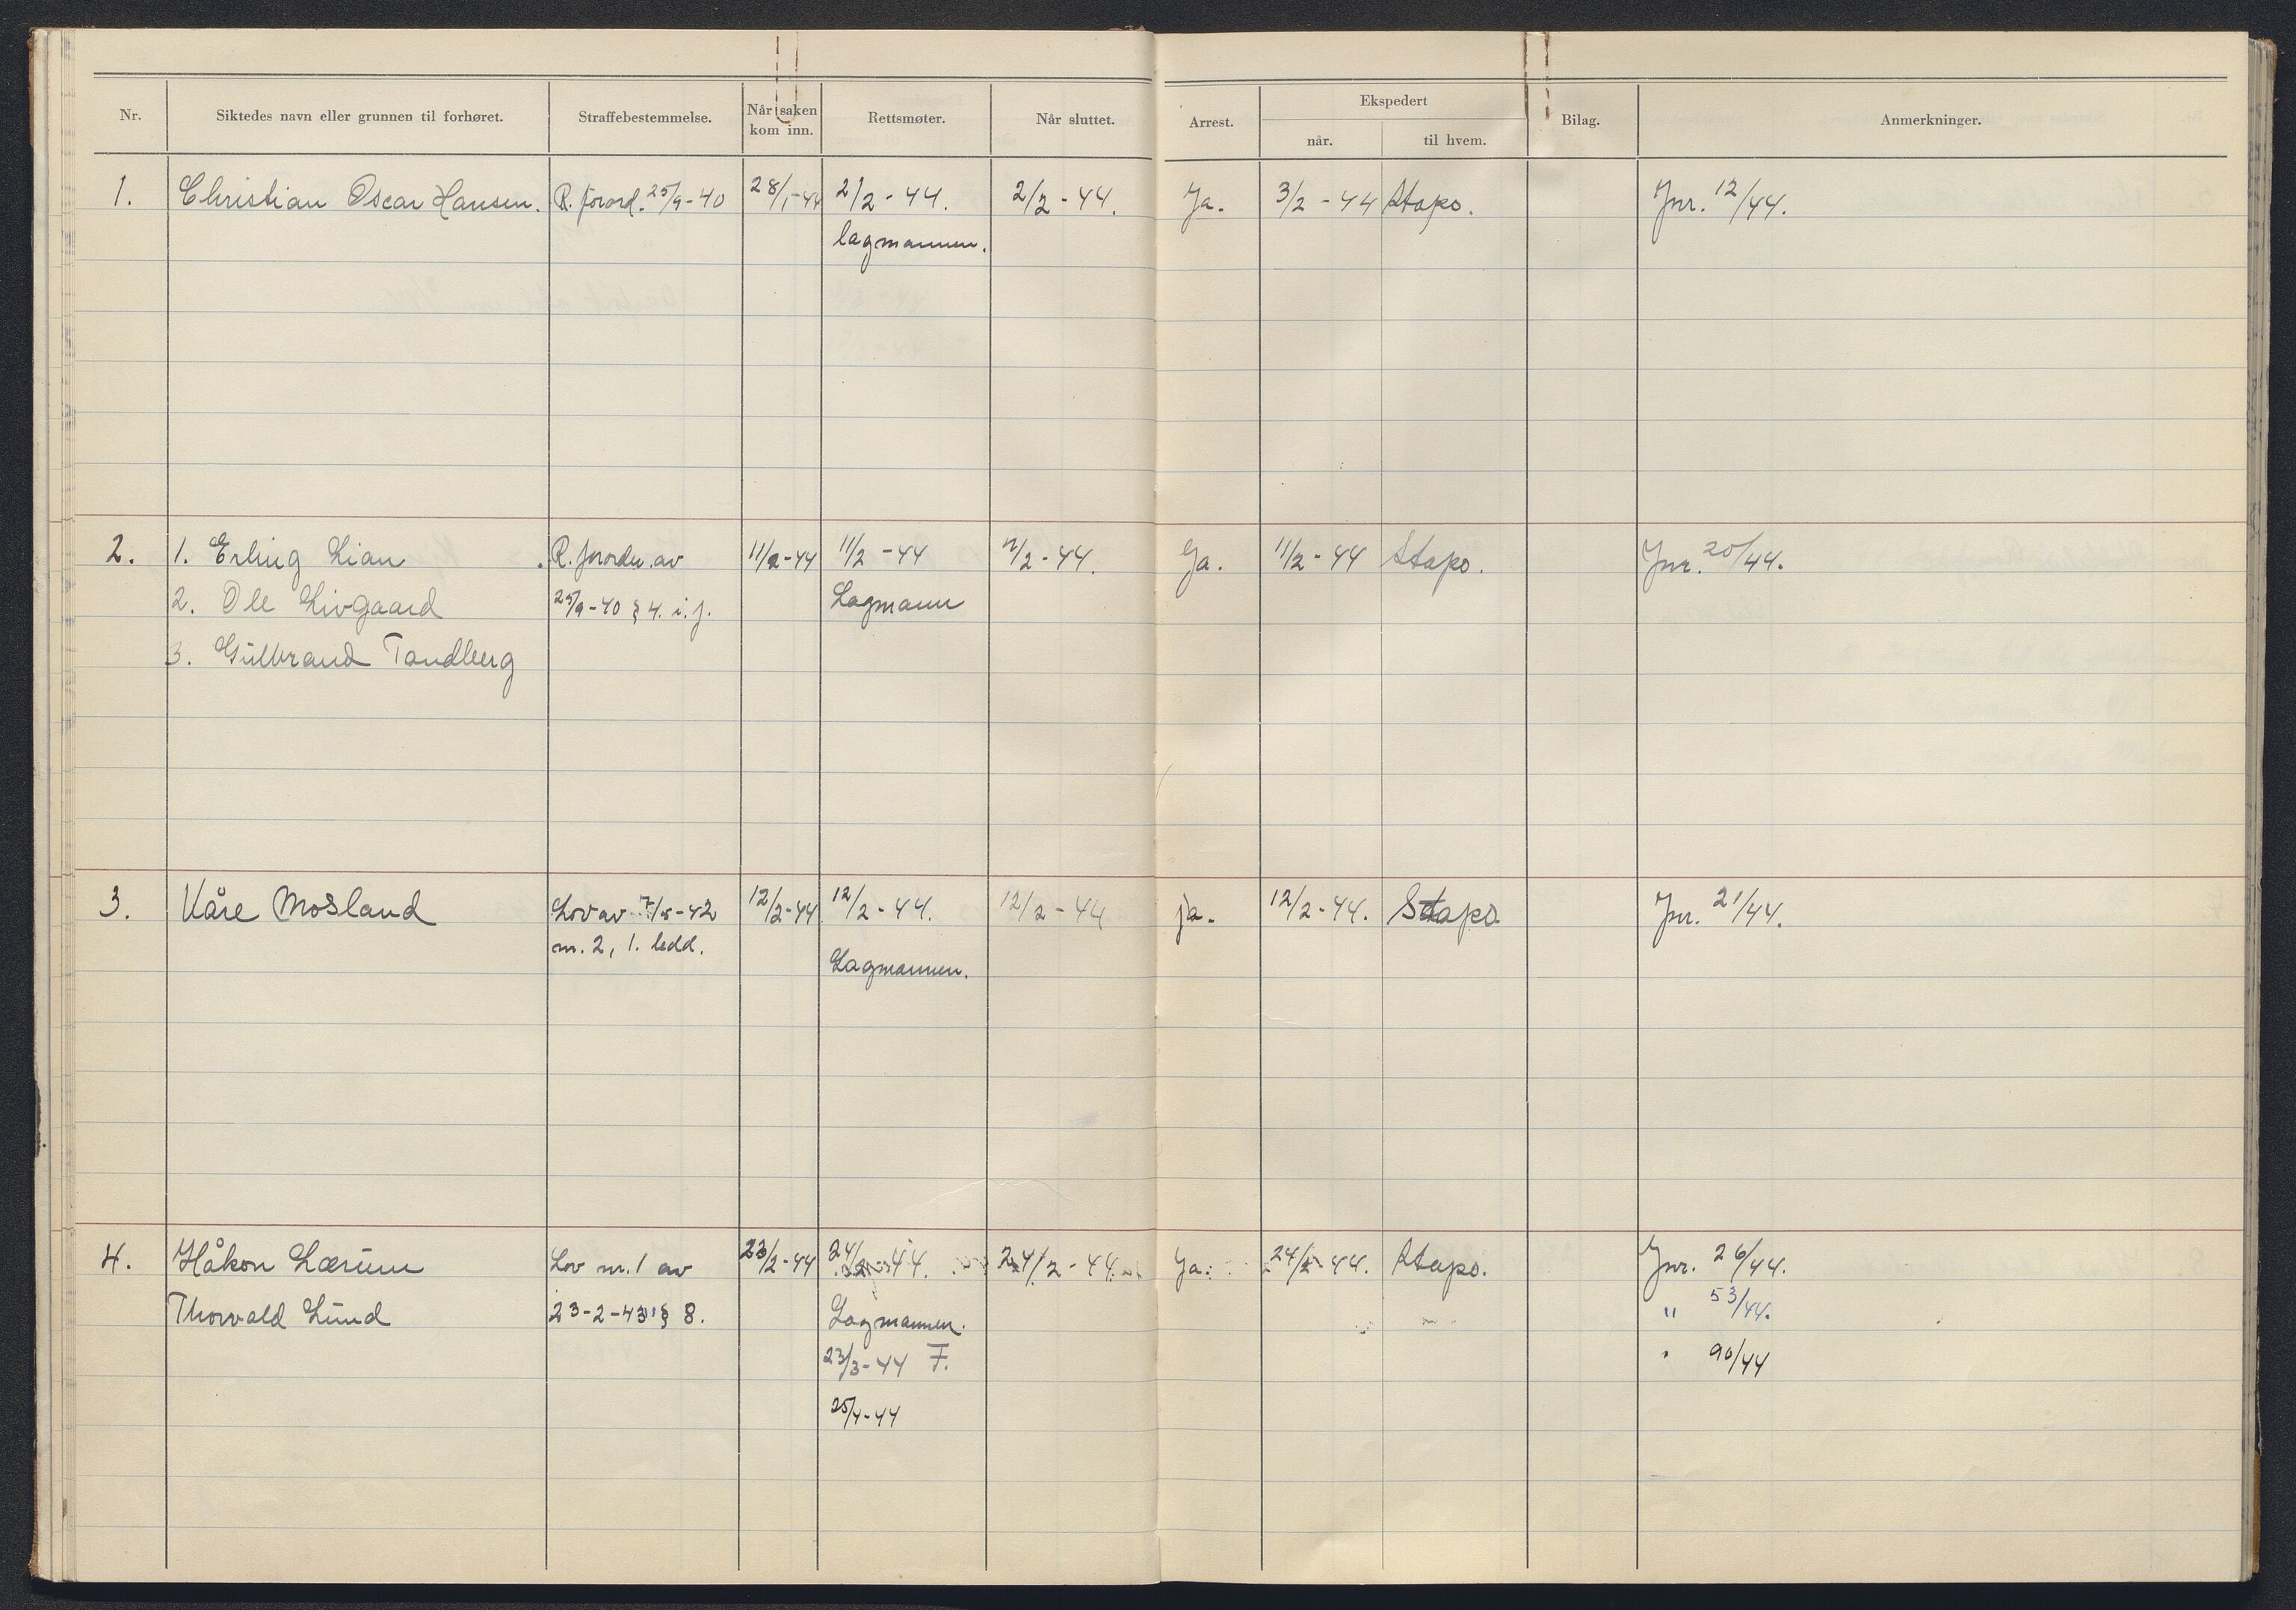 Nr. Siktedes navn eller grunnen til forhøret. Straffebestemmelse. Når saken kom inn. Rettsmøter. Når sluttet. Arrest. Ekspedert når. til hvem. Bilag. Anmerkninger.
1. Christian Oscar Hansen. R. forord. 25/9-40 28/1-44 2/2-44. 2/2-44. Ja. 3/2-44 Stapo. Jnr. 12/44.
lagmannen.
2. 1. Erling Lian R. forordn. av 11/2-44 11/2-44 11/2-44. Ja. 11/2-44 Stapo. Jnr. 20/44.
2. Ole Livgaard 25/9-40 § 4. i. f. Lagmann
3. Gulbrand Tandberg
3. Kåre Mosland Lov av 7/5-42 12/2-44 12/2-44. 12/2-44 ja. 12/2-44. Stapo. Jnr. 21/44.
nr. 2, 1. ledd.
Lagmannen.
4. Håkon Lærum Lov nr. 1 av 23/2-44 24/2-44. 24/2-44. Ja. 24/2-44. Stapo. Jnr. 26/44.
Thorvald Lund 23-2-43 § 8. Lagmannen. " 53/44.
23/3-44 F. " 90/44
25/4-44